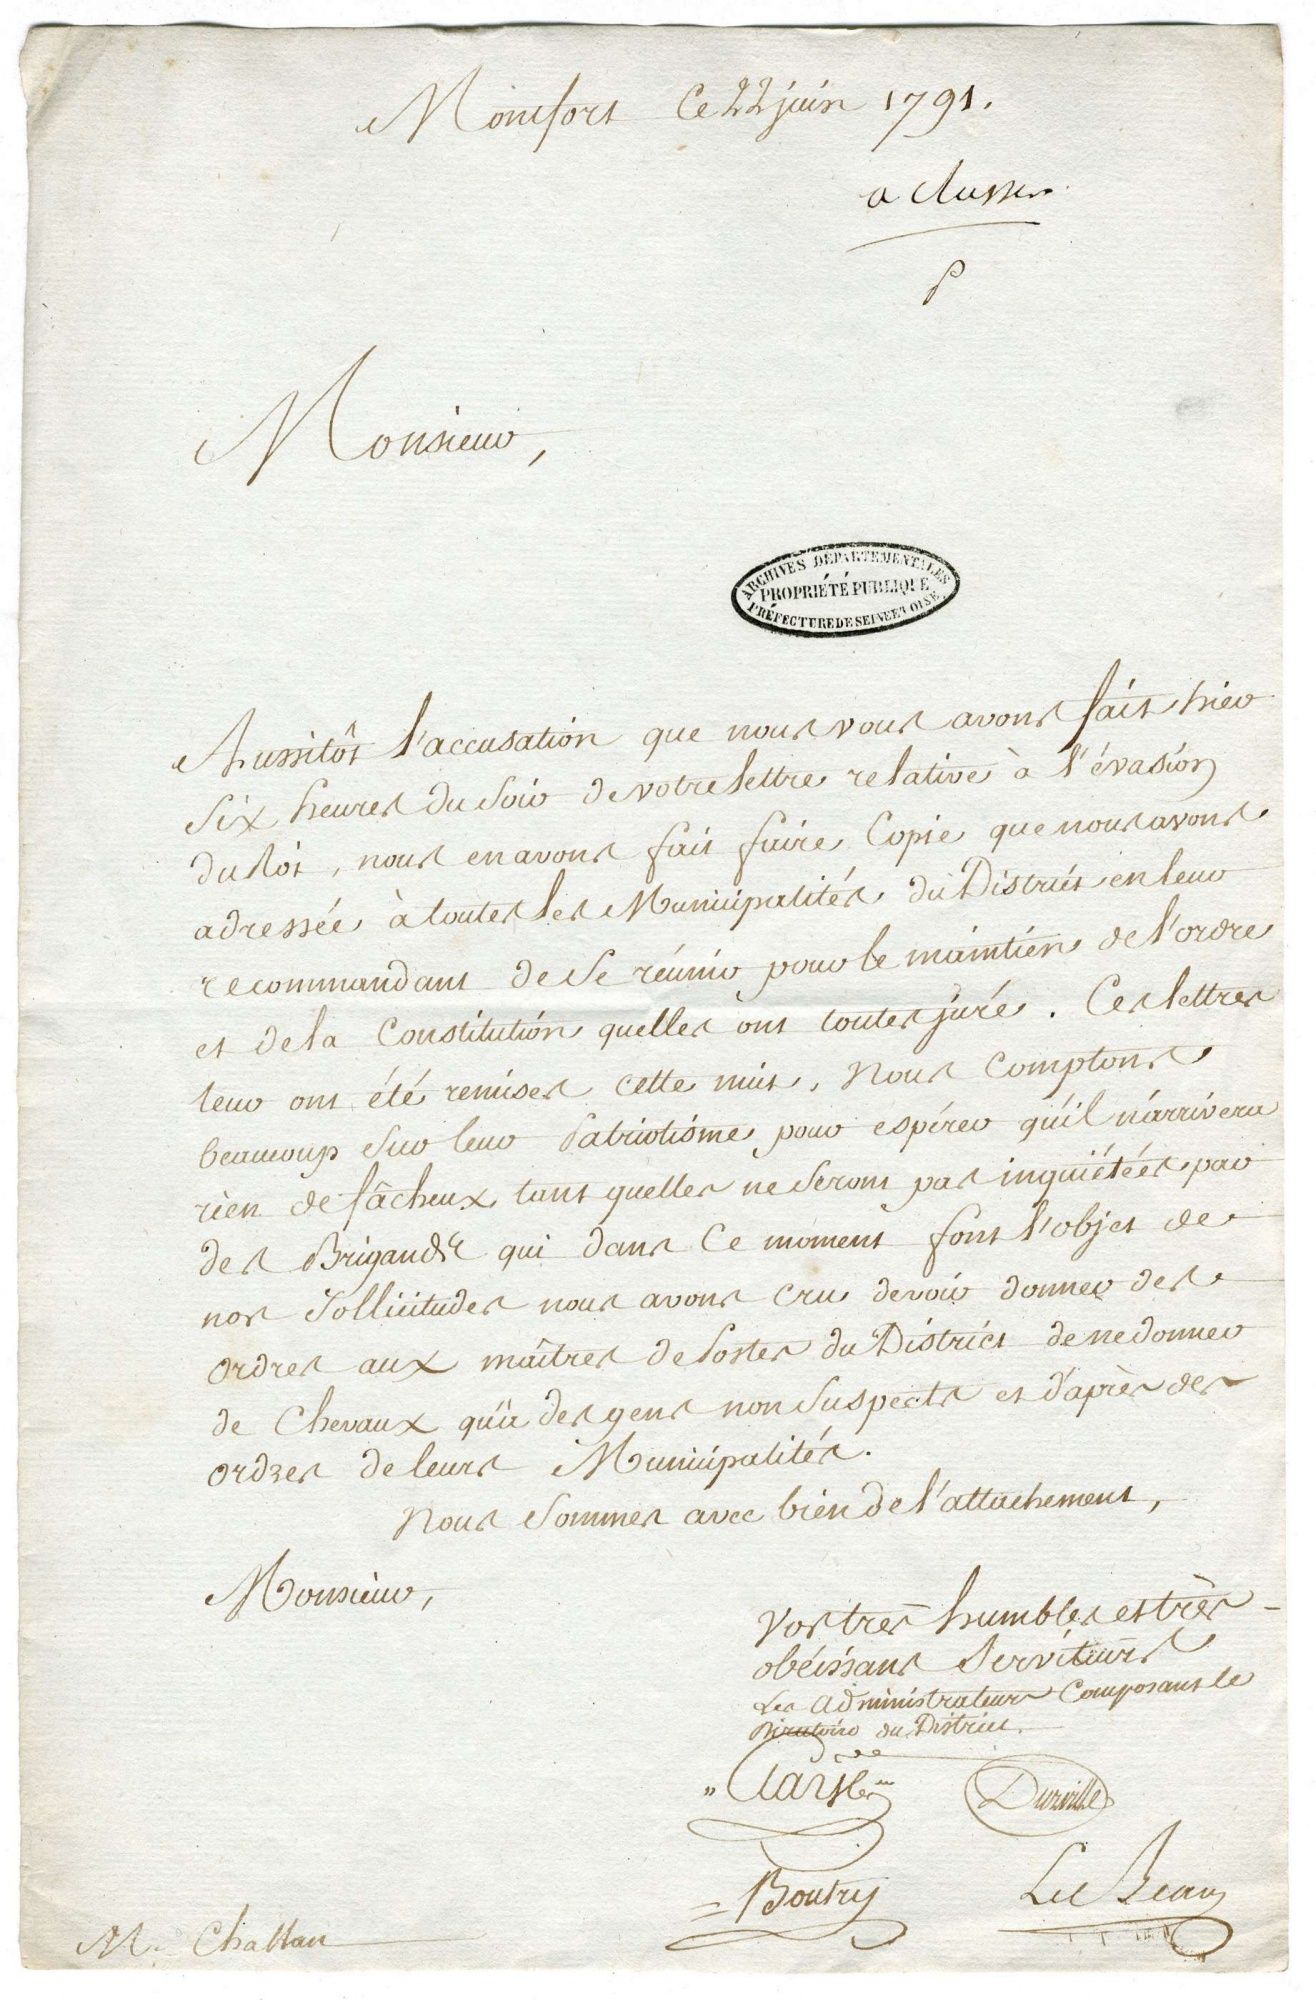 Montfort Ce 22 juin 1791.
a classer
P
Monsieur,
ARCHIVES DEPARTEMENTALES
PROPRIÉTÉ PUBLIQUE
PRÉFECTURE DE SEINE ET OISE
Aussitôt l'accusation que nous vous avons fait hier
Six heures du Soir de votre lettre relative à l'évasion
du Roi, nous en avons fait faire Copie que nous avons
adressée à toutes les Municipalités du District en leur
recommandant de Se réunir pour le maintien de l'ordre
et de la Constitution quelles ont toutes juré. Ces lettres
leur ont été remises cette nuit, Nous Comptons
beaucoup Sur leur Patriotisme pour espérer qu'il n'arrivera
rien de fâcheux tant quelles ne Seront pas inquiétées par
des Brigands qui dans Ce moment font l'objet de
nos Sollicitudes nous avons cru devoir donner des
ordres aux maîtres de Postes du District de ne donner
de Chevaux qu'à des gens non Suspects et d'après des
ordres de leurs Municipalités.
Nous Sommes avec bien de l'attachement,
Monsieur,
Vos très humbles et très
obéissans Serviteurs
Les Administrateurs Composant le
Directoire du District.
Durville
Boutry
Le Beau
M. Challan